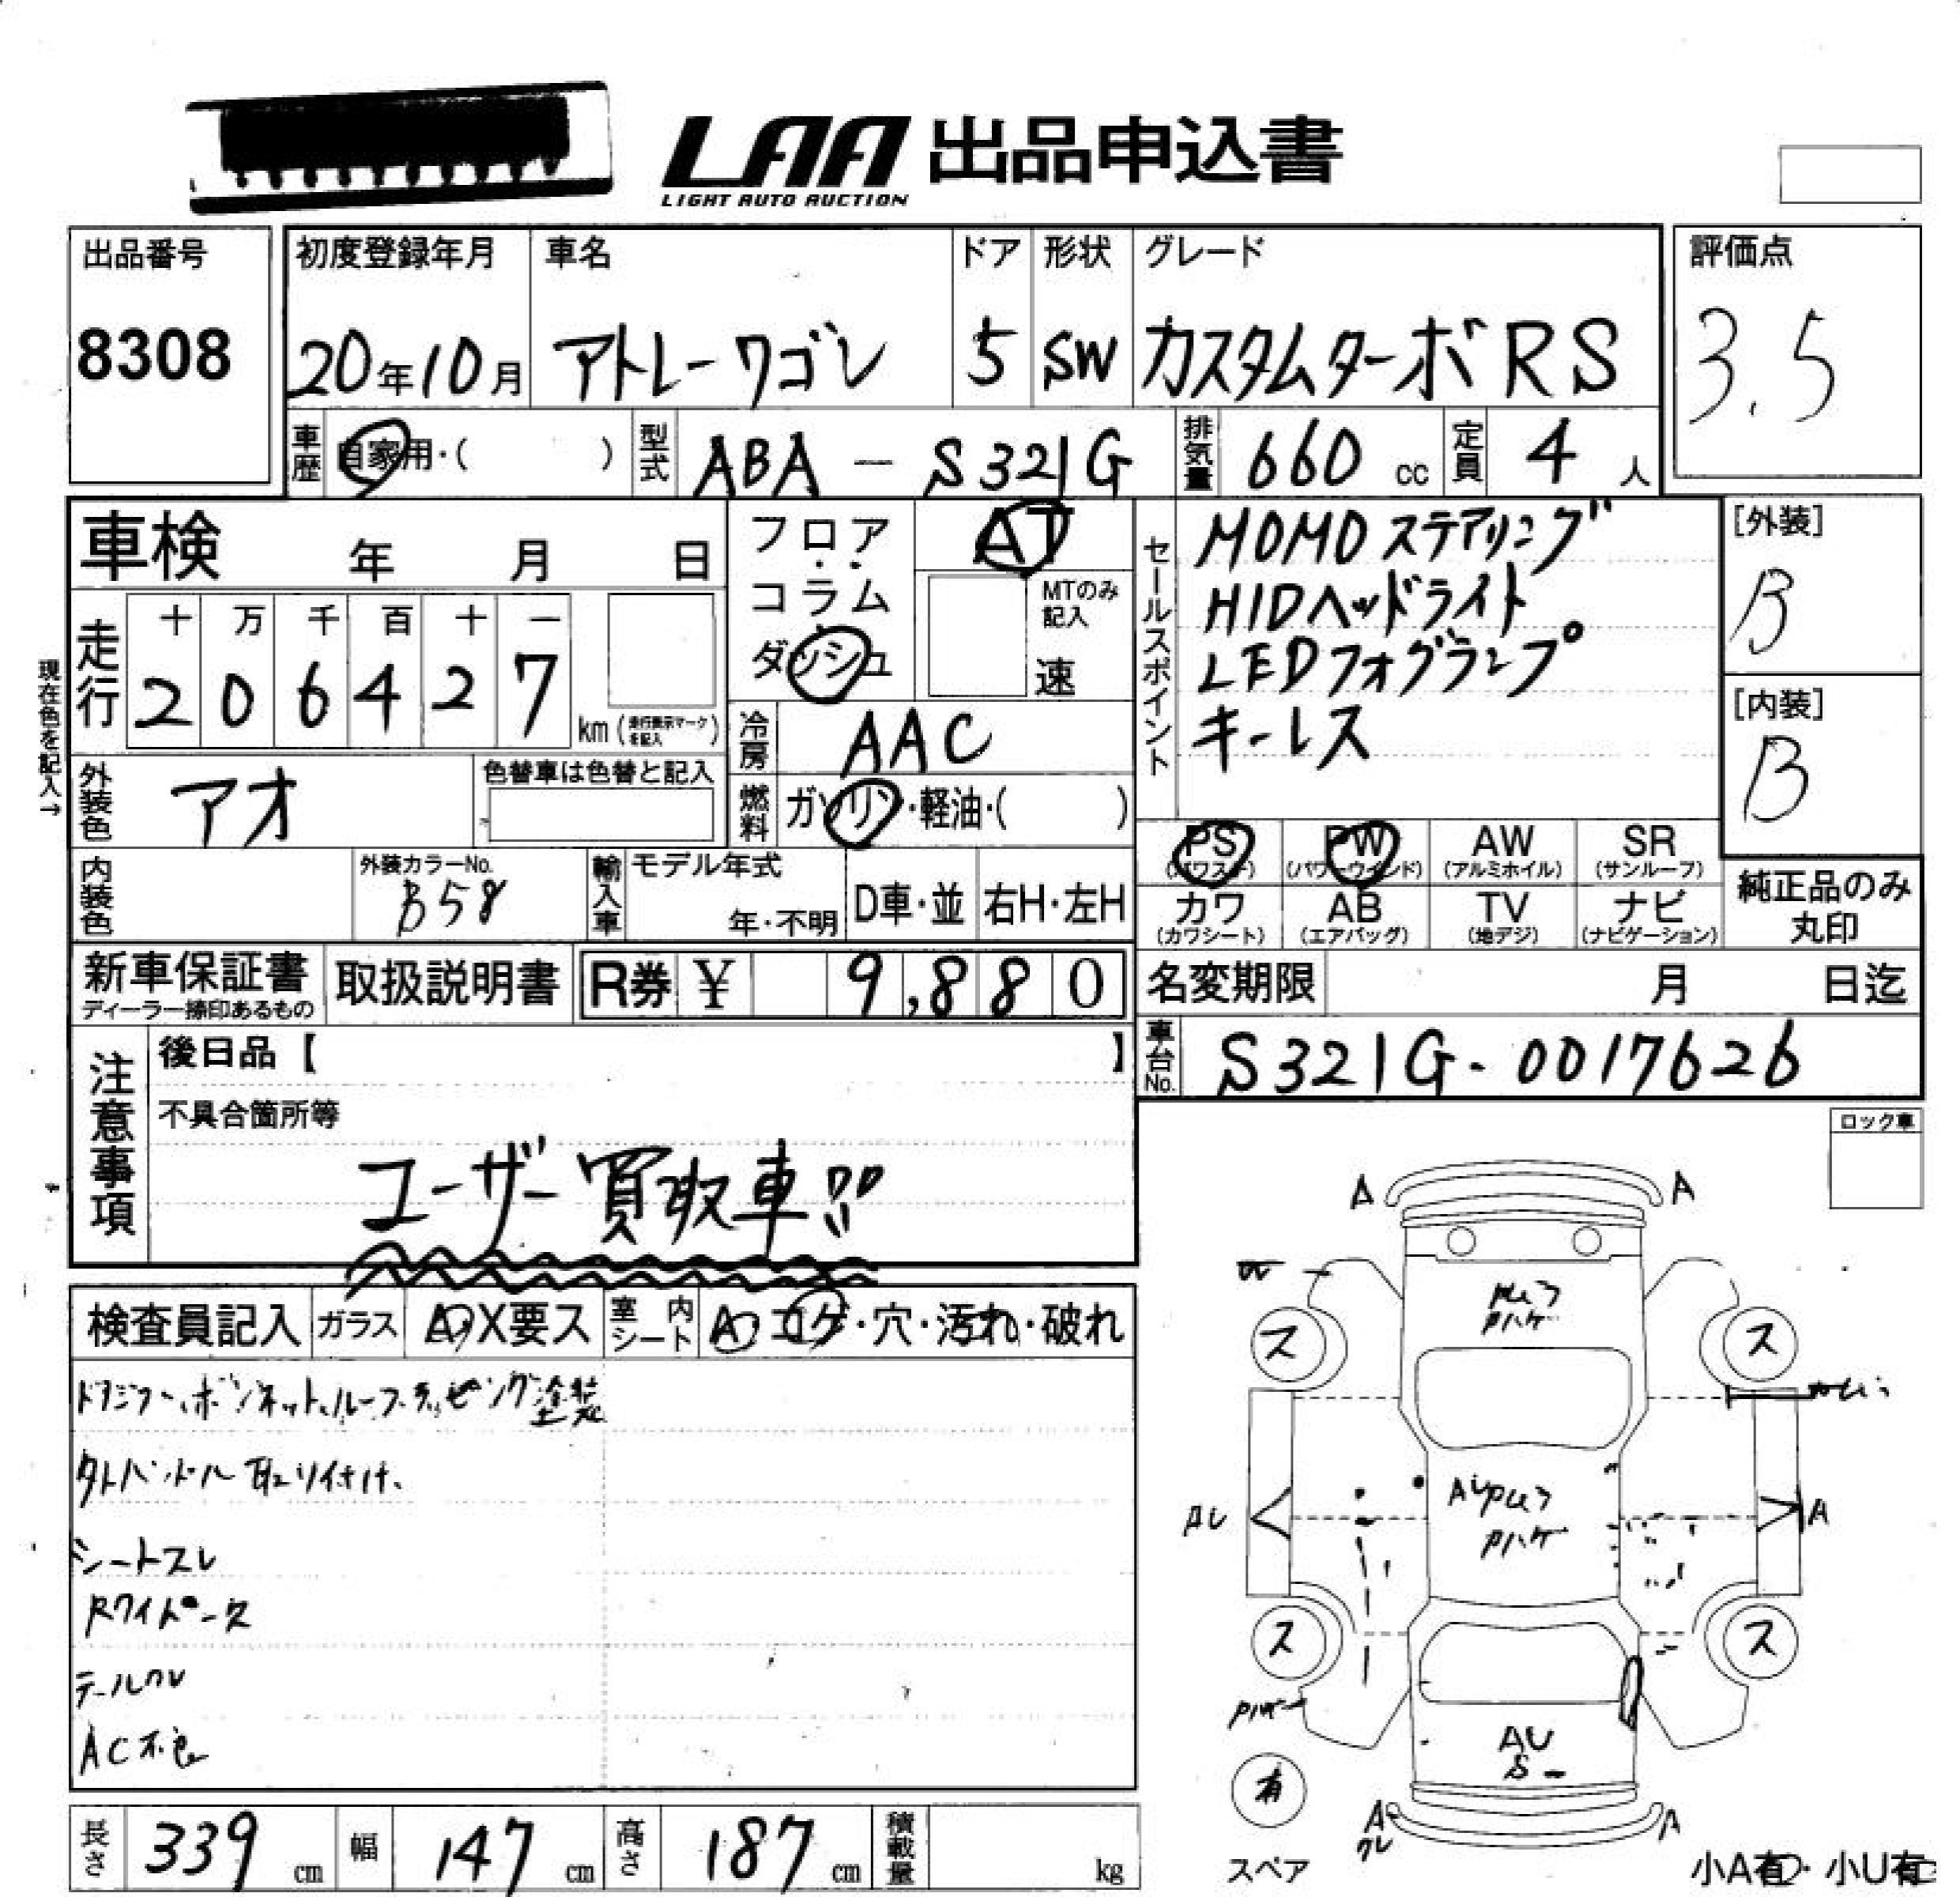 LAA 出品申込書
LIGHT AUTO AUCTION
出品番号
8308
初度登録年月
20年10月
車名
アトレーワゴン
ドア
5
形状
SW
グレード
カスタムターボRS
評価点
3.5
車歴
自家用・( )
型式
ABA-S321G
排気量
660 cc
定員
4 人
車検 年 月 日
フロア
コラム
ダッシュ
AT
MTのみ記入
速
セールスポイント
MOMOステアリング
HIDヘッドライト
LEDフォグランプ
キーレス
[外装]
B
[内装]
B
現在色を記入→
走行
十 万 千 百 十 一
2 0 6 4 2 7
km(走行表示マークを記入)
冷房
AAC
外装色
アオ
色替車は色替と記入
燃料
ガソリン・軽油・( )
PS (パワステ)
PW (パワーウインド)
AW (アルミホイル)
SR (サンルーフ)
カワ (カワシート)
AB (エアバッグ)
TV (地デジ)
ナビ (ナビゲーション)
純正品のみ
丸印
内装色
外装カラーNo.
B58
輸入車
モデル年式
年・不明
D車・並
右H・左H
新車保証書
ディーラー捺印あるもの
取扱説明書
R券 ¥ 9,880
名変期限 月 日迄
車台No.
S321G-0017626
注意事項
後日品【 】
不具合箇所等
ユーザー買取車!!
ロック車
検査員記入
ガラス
A・X要ス
室内シート
A・コゲ・穴・汚れ・破れ
シートスレ
AC不良
A A
ス ス
AU A
ス ス
AU
S
有
スペア
A A
長さ 339 cm
幅 147 cm
高さ 187 cm
積載量 kg
小A有・小U有